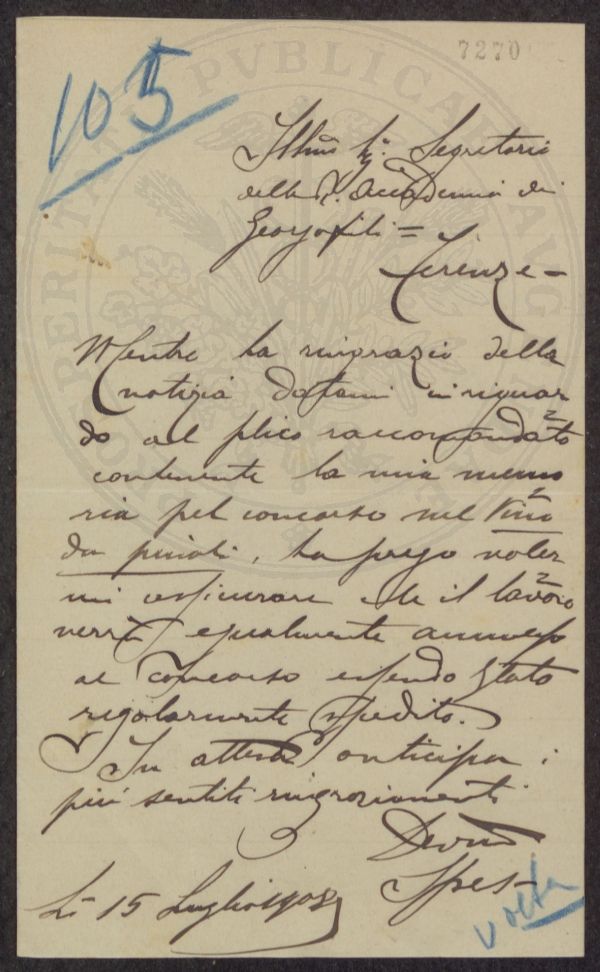 7270
105
PROSPERITATI PVBLICAE AVGENDAE
Illmo Sig. Segretario
della R. Accademia dei
Georgofili =
Firenze =
Mentre La ringrazio della
notizia datami in riguar
do al plico raccomandato
contenente la mia memo
ria pel concorso sul Vino
da pinoli, La prego voler
mi assicurare che il lavoro
verrà egualmente ammesso
al Concorso essendo stato
regolarmente spedito.
In attesa anticipa i
più sentiti ringraziamenti
Devmo
Spes
Lì 15 Luglio 1903
volta